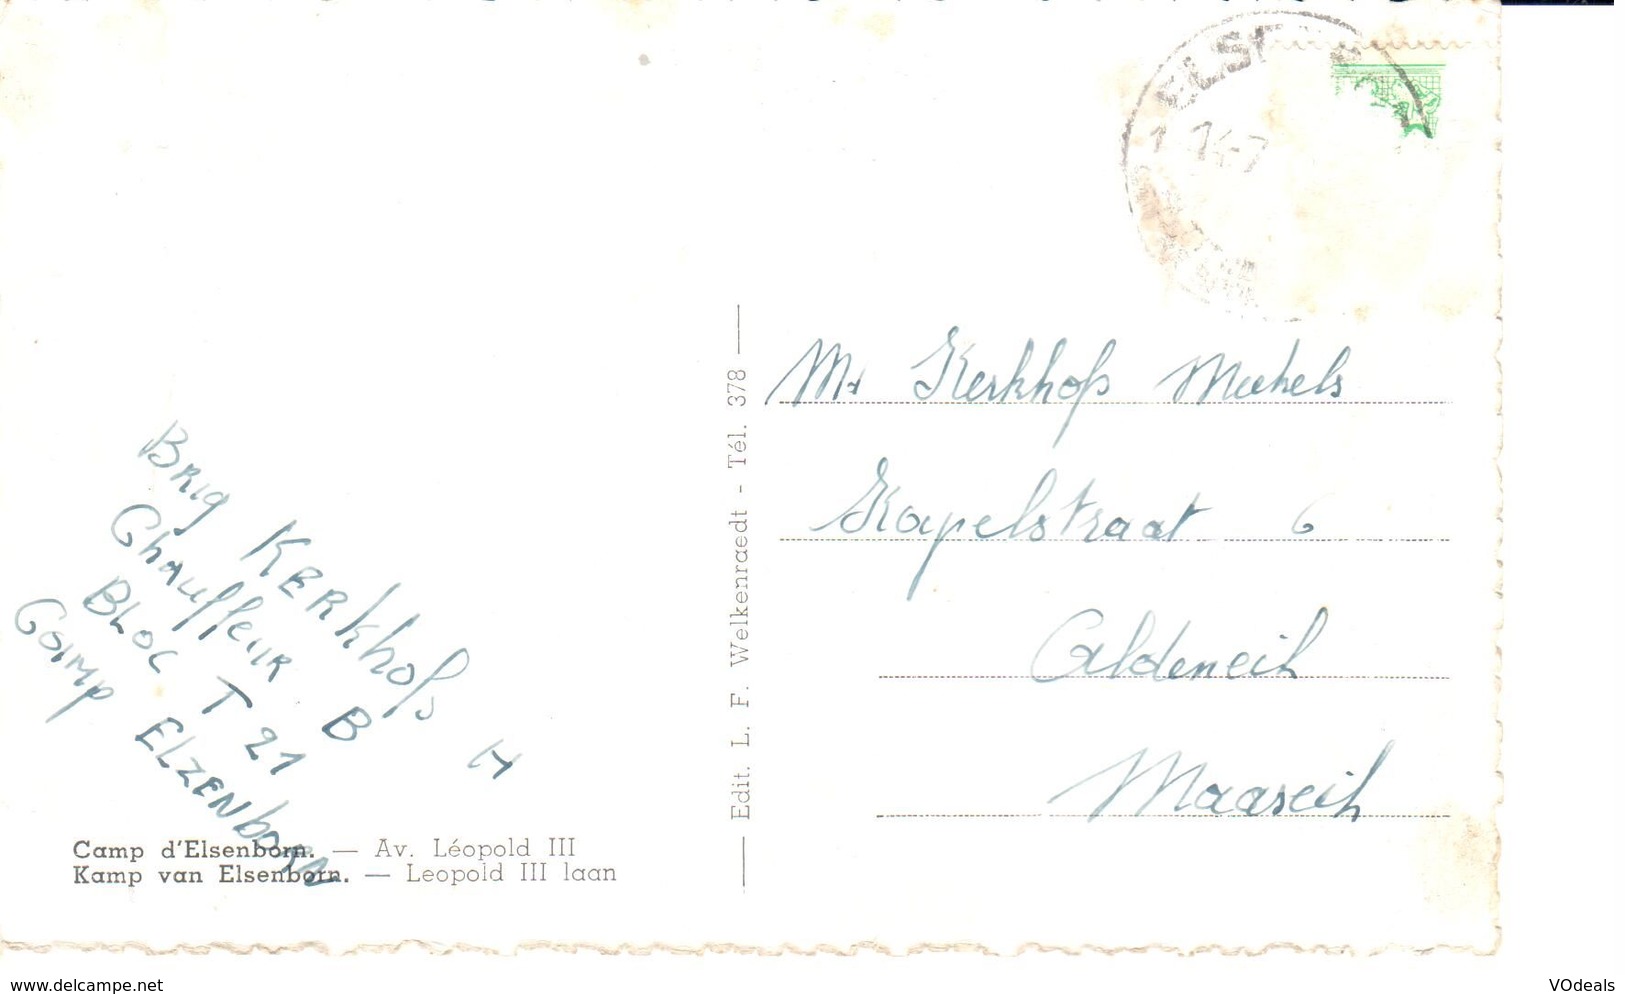 ELS
1 14-7
Mr Kerkhofs Michels
Kapelstraat 6
Aldeneik
Maaseik
Brig KERKhofs H
Chauffeur B
BLOC T 21
Camp ELZENBORN
Edit. L. F. Welkenraedt - Tél. 378
Camp d'Elsenborn. — Av. Léopold III
Kamp van Elsenborn. — Leopold III laan
www.delcampe.net
VOdeals